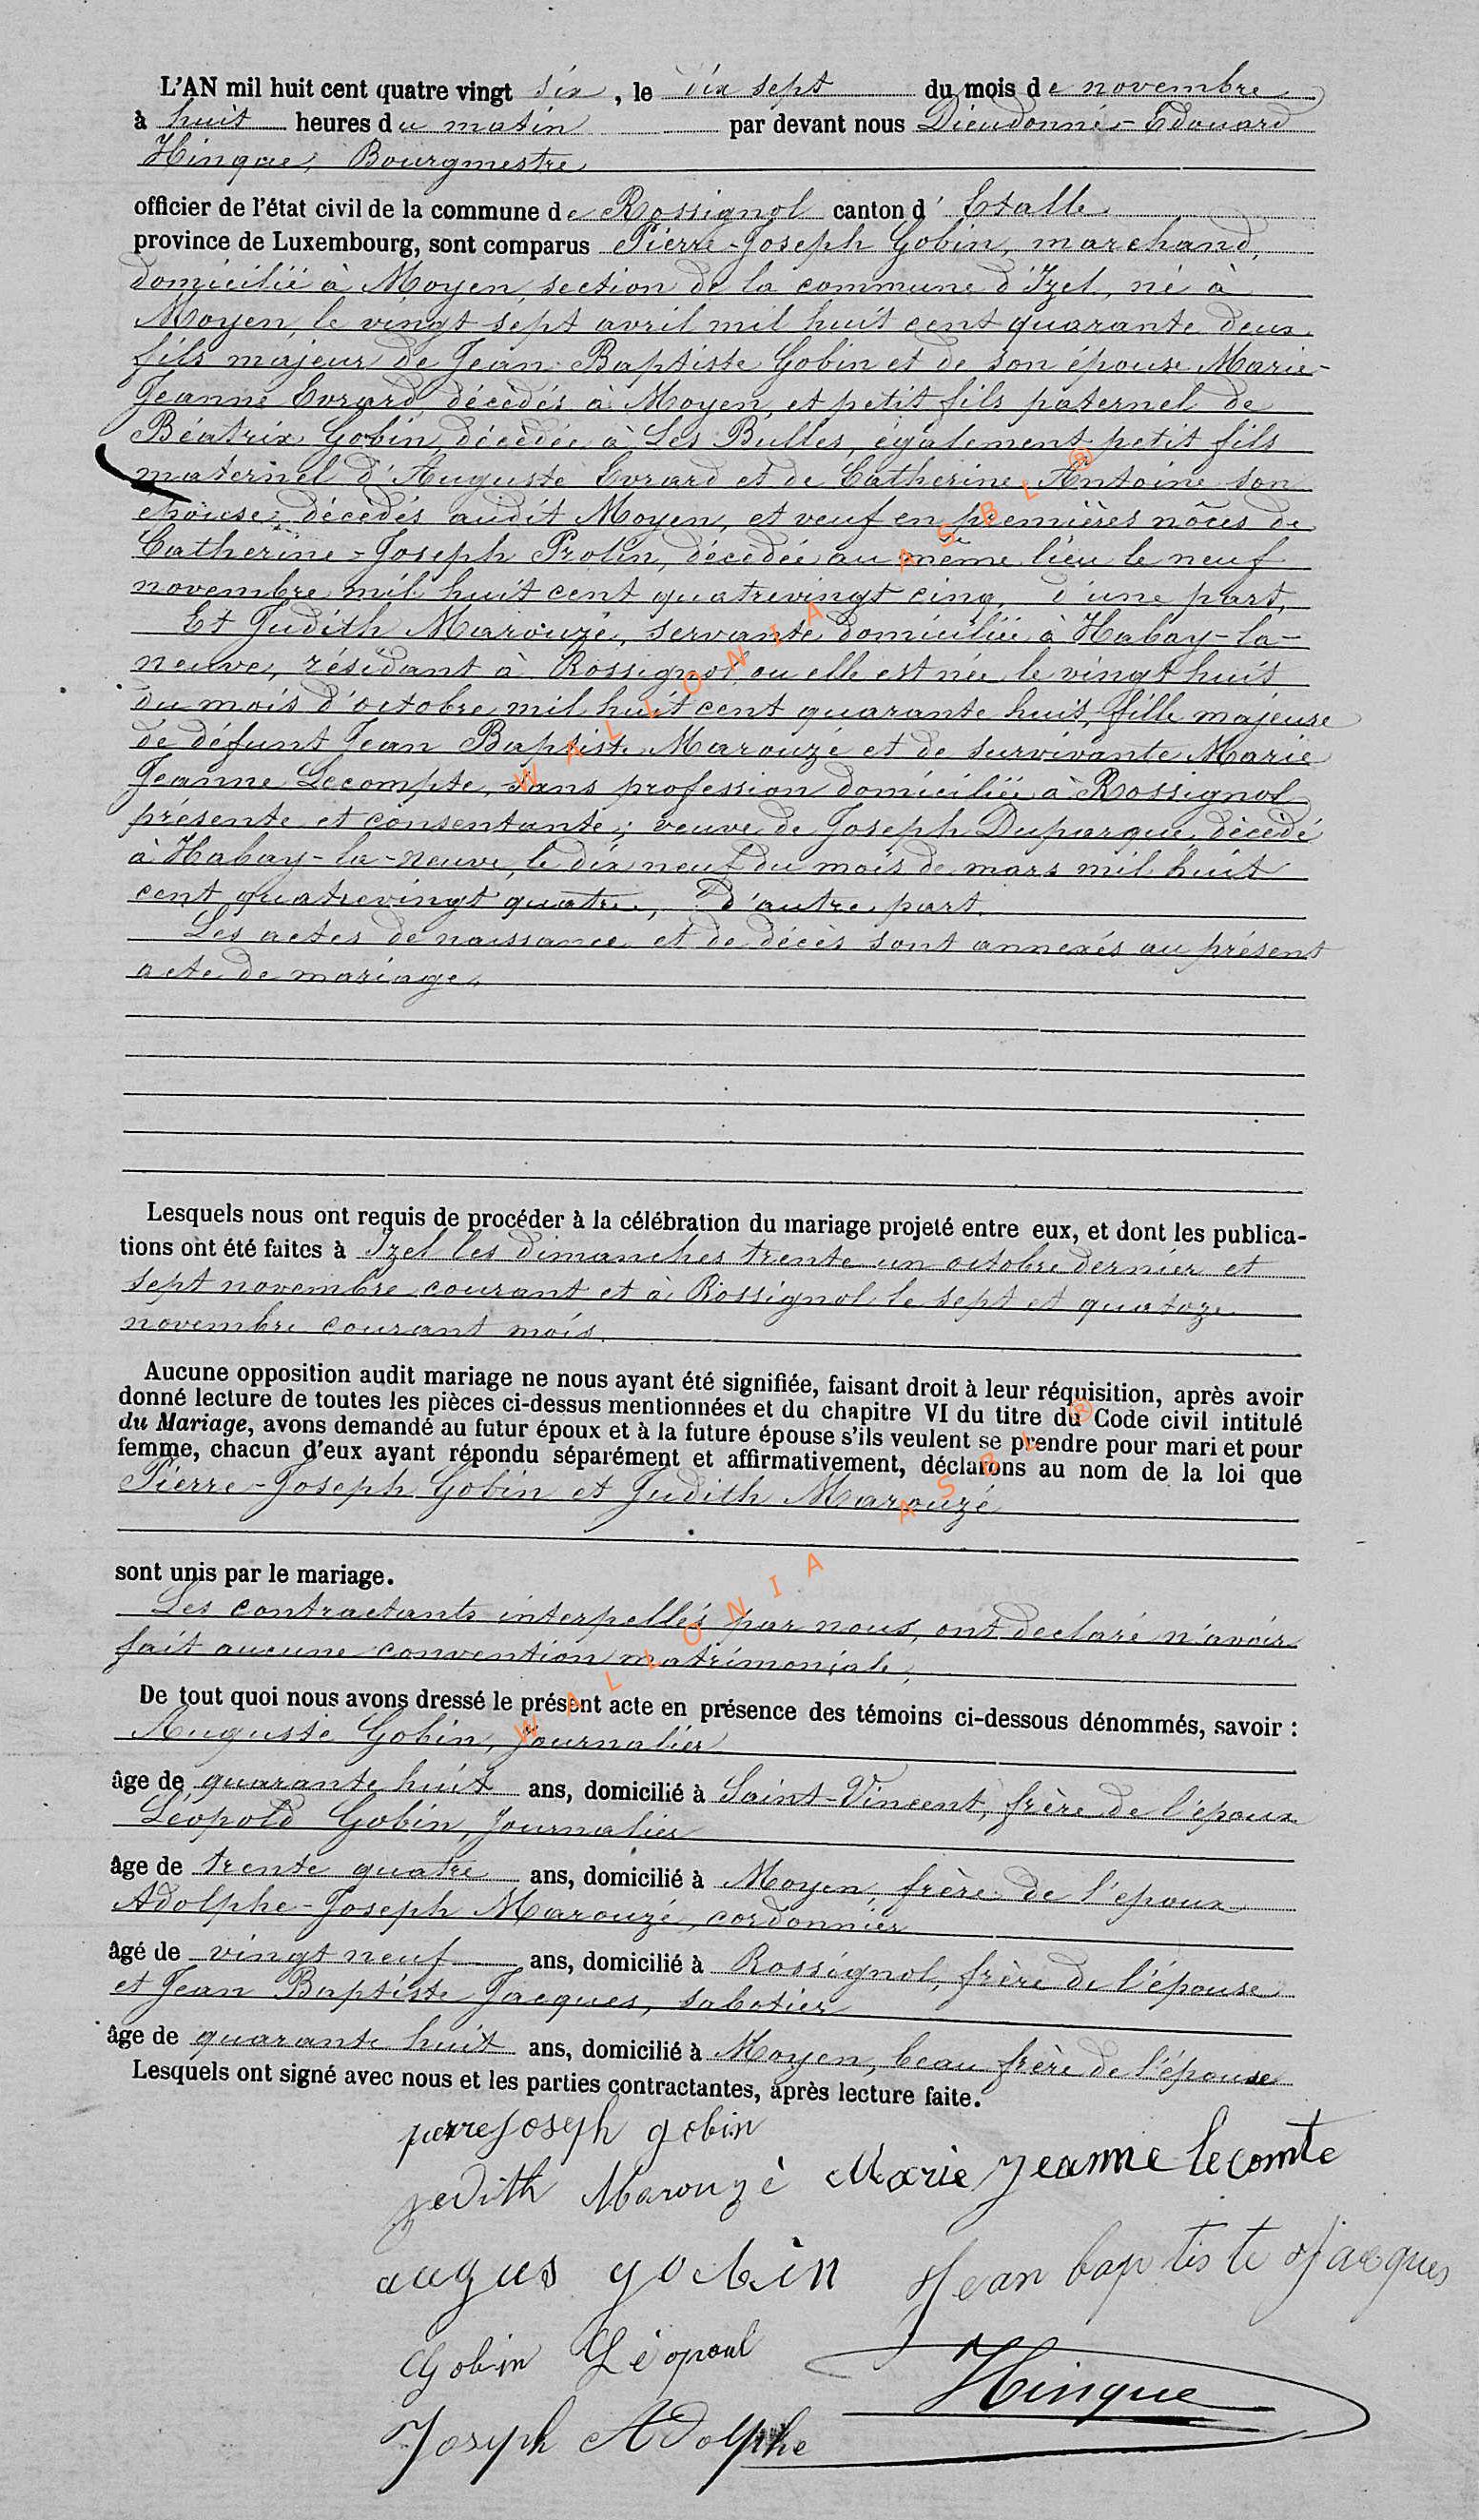 L'AN mil huit cent quatre vingt six, le dix sept du mois de novembre
à huit heures du matin par devant nous Dieudonné-Edouard
Hinque, Bourgmestre
officier de l'état civil de la commune de Rossignol canton d'Etalle
province de Luxembourg, sont comparus Pierre-Joseph Gobin, marchand,
domicilié à Moyen, section de la commune d'Izel, né à
Moyen, le vingt sept avril mil huit cent quarante deux
fils majeur de Jean-Baptiste Gobin et de son épouse Marie-
Jeanne Evrard, décédés à Moyen, et petit fils paternel de
Béatrix Gobin, décédée à Les Bulles, également petit fils
maternel d'Auguste Evrard et de Catherine Antoine son
épouse, décédés audit Moyen, et veuf en premières nôces de
Catherine-Joseph Prolin, décédée au même lieu le neuf
novembre mil huit cent quatrevingt cinq, d'une part,
Et Judith Marouzé, servante domiciliée à Habay-la-
neuve, résidant à Rossignol, ou elle est née le vingt huit
du mois d'octobre mil huit cent quarante huit, fille majeure
de défunt Jean Baptiste Marouzé et de survivante Marie
Jeanne Lecompte, sans profession domiciliée à Rossignol
présente et consentante; veuve de Joseph Duparque, décédé
à Habay-la-Neuve, le dix neuf du mois de mars mil huit
cent quatrevingt quatre, D'autre part.
Les actes de naissance et de décès sont annexés au présent
acte de mariage.
Lesquels nous ont requis de procéder à la célébration du mariage projeté entre eux, et dont les publica-
tions ont été faites à Izel les dimanches trente un octobre dernier et
sept novembre courant et à Rossignol le sept et quatoze
novembre courant mois.
Aucune opposition audit mariage ne nous ayant été signifiée, faisant droit à leur réquisition, après avoir
donné lecture de toutes les pièces ci-dessus mentionnées et du chapitre VI du titre du Code civil intitulé
du Mariage, avons demandé au futur époux et à la future épouse s'ils veulent se prendre pour mari et pour
femme, chacun d'eux ayant répondu séparément et affirmativement, déclarons au nom de la loi que
Pierre-Joseph Gobin et Judith Marouzé
sont unis par le mariage.
Les contractants interpellés par nous, ont declaré n'avoir
fait aucune convention matrimoniale,
De tout quoi nous avons dressé le présent acte en présence des témoins ci-dessous dénommés, savoir :
Auguste Gobin, Journalier
âge de quarante huit ans, domicilié à Saint-Vincent, frère de l'époux
Léopold Gobin, Journalier
âge de trente quatre ans, domicilié à Moyen, frère de l'epoux
Adolphe-Joseph Marouzé, cordonnier
âgé de vingt neuf ans, domicilié à Rossignol, frère de l'épouse
et Jean Baptiste Jacques, sabotier
âge de quarante huit ans, domicilié à Moyen, beau frère de l'épouse
Lesquels ont signé avec nous et les parties contractantes, après lecture faite.
pierre joseph gobin
jedith Marouzé Marie Jeanne lecomte
augus gobin Jean baptiste Jacques
Gobin Léopoul
Hinque
Joseph Adolphe
WALLONIA ASBL®
WALLONIA ASBL®